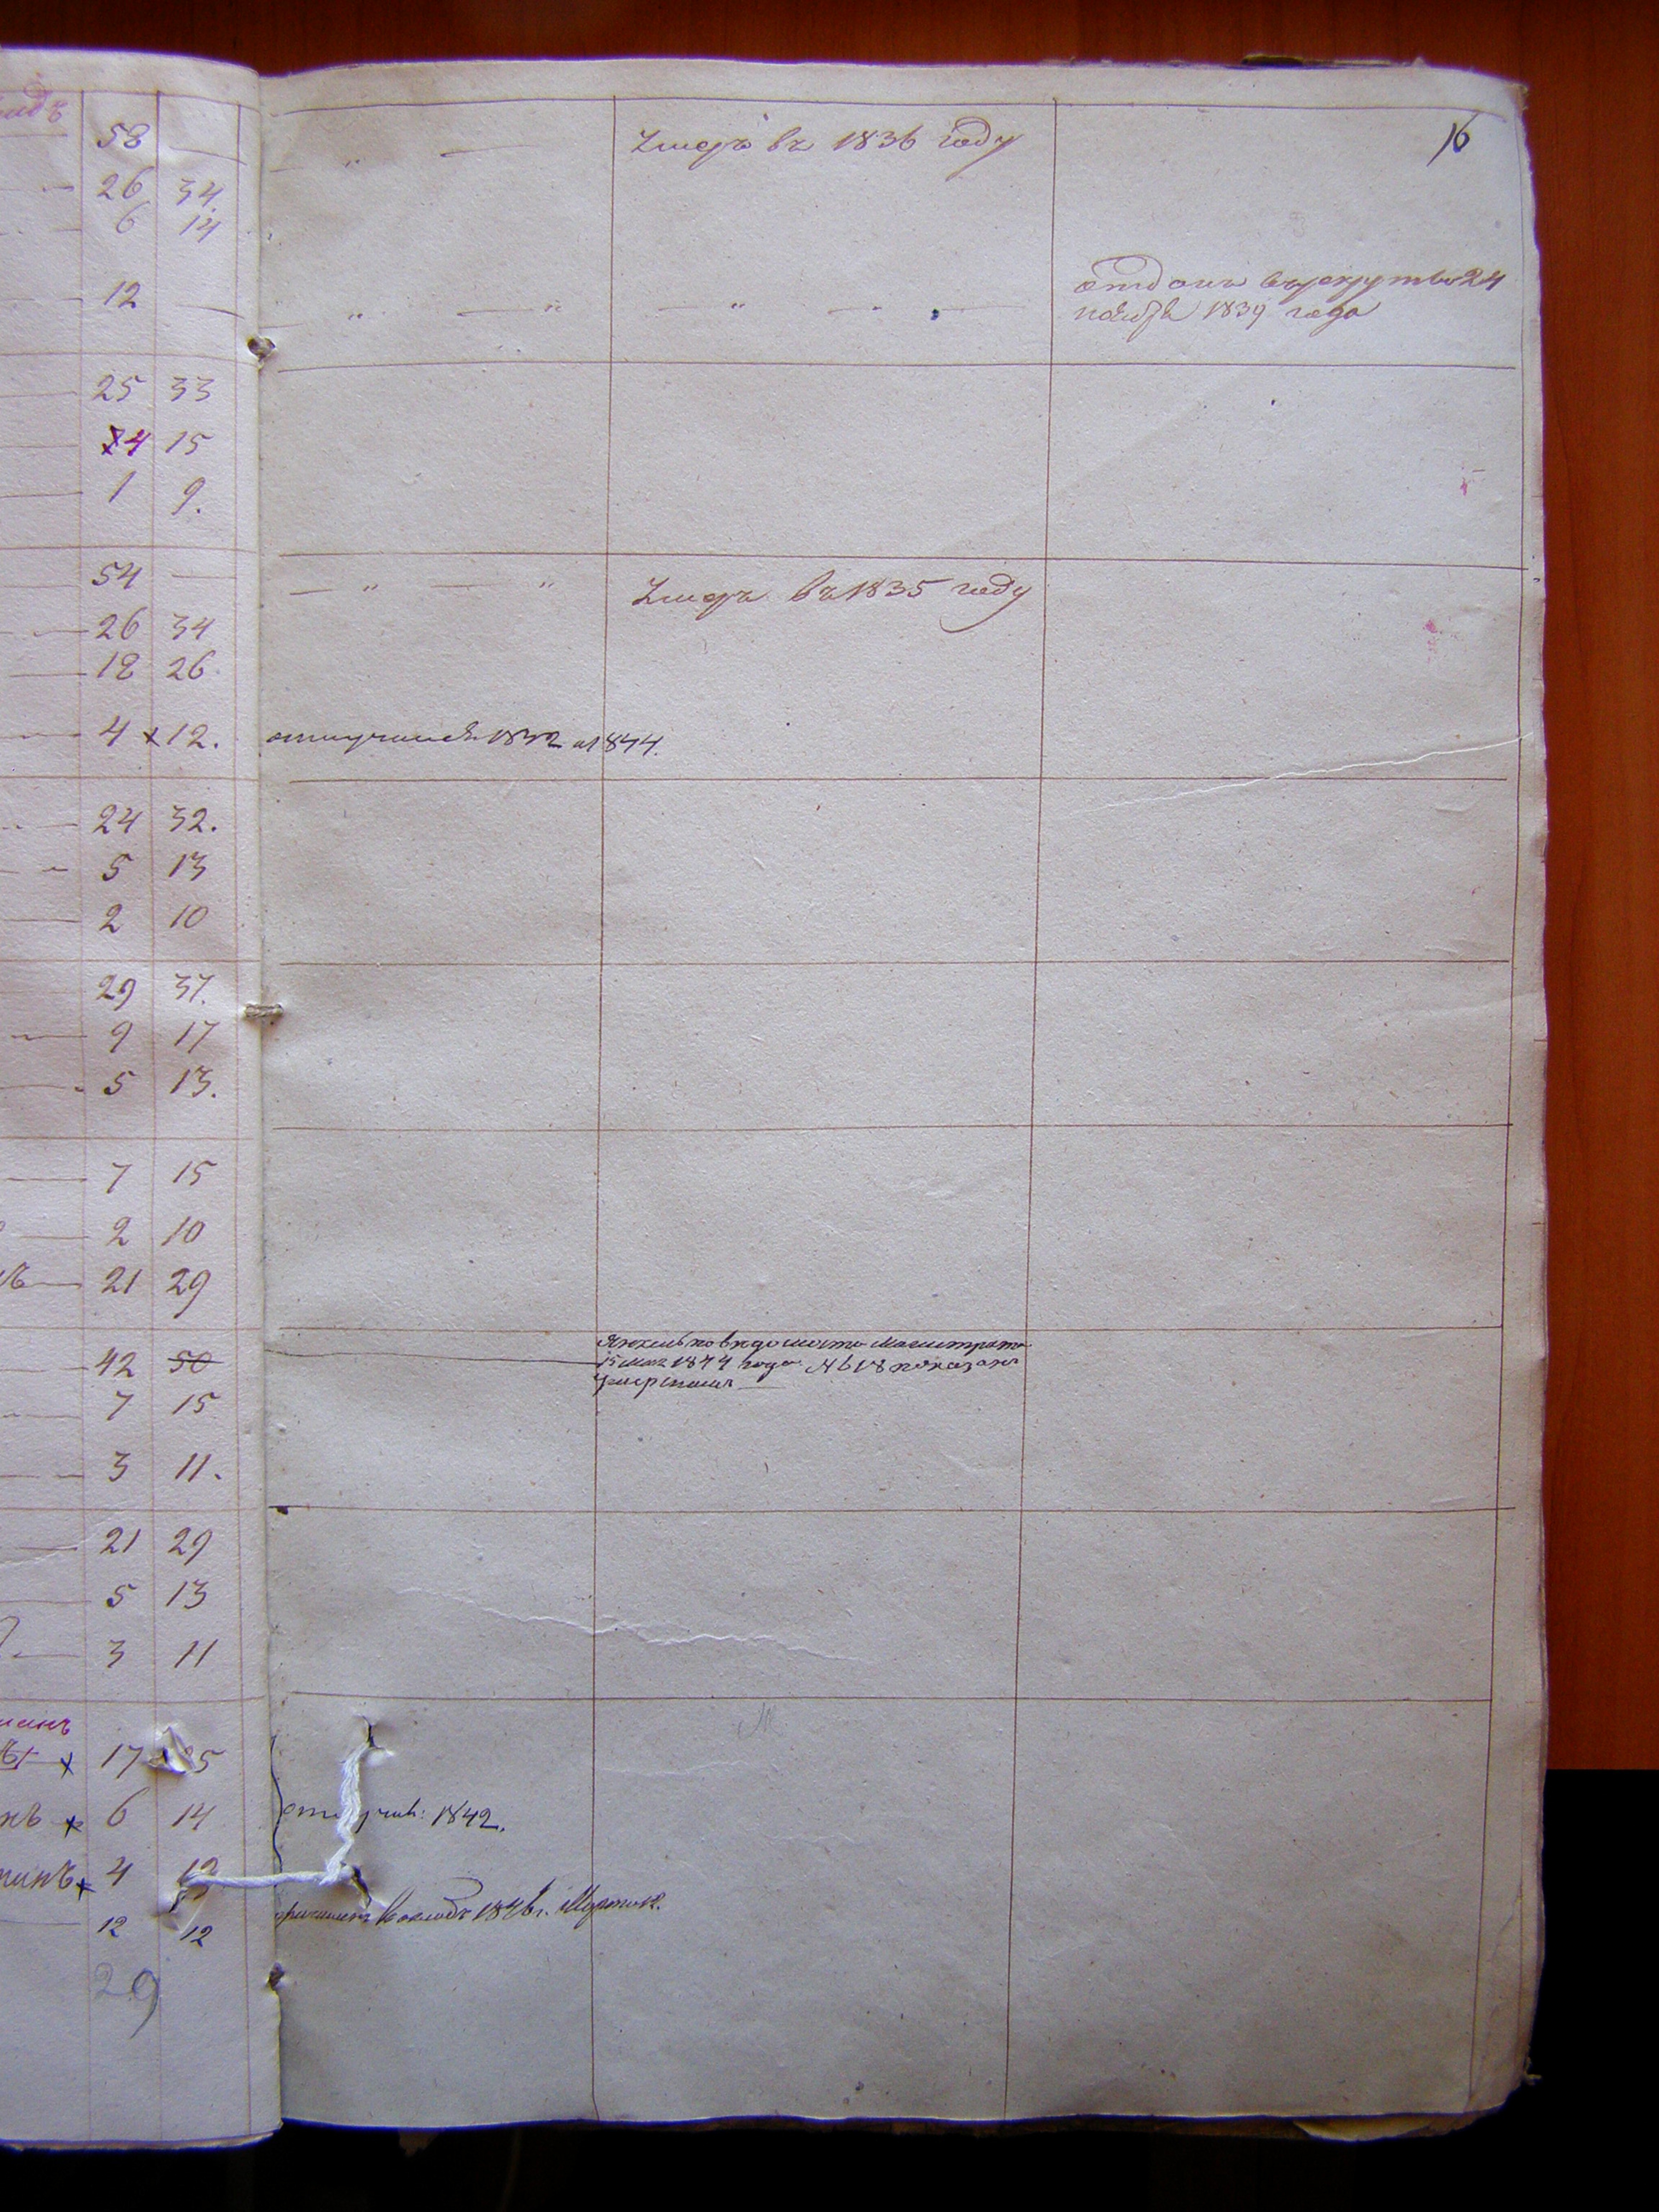 16
58 — Умеръ въ 1836 году
26 34
6 14
12 — отданъ въ рекрутство 24
ноября 1839 года
25 33
14 15
1 9.
54 — Умеръ въ 1835 году
26 34
18 26
4 x 12. 1844.
24 32.
5 13
2 10
29 37.
9 17
5 13.
7 15
2 10
21 29
42 50 по ведомости Магистрата
15 мая 1844 года № 618 показанъ
умершимъ
7 15
3 11.
21 29
5 13
3 11
x 17 25
x 6 14 1842.
x 4 12
12 12 1846 г.
29